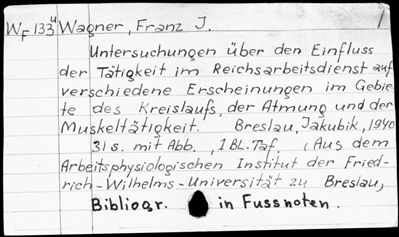 WF 133u Wagner, Franz J. 1
Untersuchungen über den Einfluss
der Tätigkeit im Reichsarbeitsdienst auf
verschiedene Erscheinungen im Gebie-
te des Kreislaufs, der Atmung und der
Muskeltätigkeit. Breslau, Jakubik, 1940
31 S. mit Abb., 1 Bl. Taf. (Aus dem
Arbeitsphysiologischen Institut der Fried-
rich-Wilhelms-Universität zu Breslau,
Bibliogr. in Fussnoten.